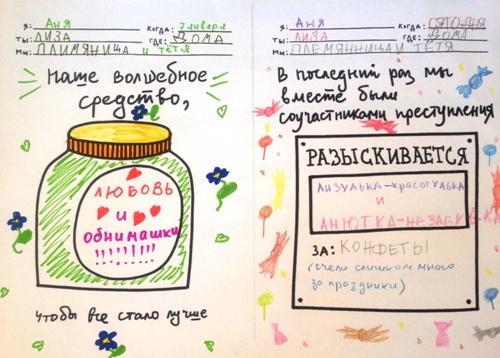 Я: АНЯ КОГДА: 7 января
ТЫ: ЛИЗА ГДЕ: ДОМА
МЫ: ПЛИМЯНИЦА и тётя
Наше волшебное
средство,
ЛЮБОВЬ
И
ОБНИМАШКИ
!!!!!!!!!
чтобы все стало лучше
Я: АНЯ КОГДА: СЯТОДНЯ
ТЫ: ЛИЗА ГДЕ: ДОМА
МЫ: ПЛЕМЯННИЦА И ТЁТЯ
В последний раз мы
вместе были
соучастниками преступления
РАЗЫСКИВАЕТСЯ
ЛИЗУЛЬКА-КРАСОТУЛЬКА
И
АНЮТКА-НЕЗАБУДКА
ЗА: КОНФЕТЫ
(съели слишком много
за праздники)